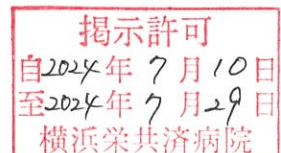 掲示許可
自2024年7月10日
至2024年7月29日
横浜栄共済病院